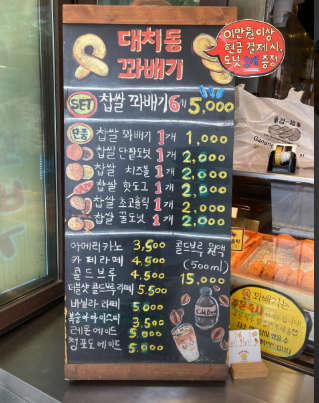 대치동
꽈배기
이만원 이상
현금 결제 시,
도넛 1개 증정
SET 찹쌀 꽈배기 6개 5,000
단품
찹쌀 꽈배기 1개 1,000
찹쌀 단팥도넛 1개 2,000
찹쌀 치즈볼 1개 2,000
찹쌀 핫도그 1개 2,000
찹쌀 초코츄릭 1개 2,000
찹쌀 꿀도넛 1개 2,000
아메리카노 3,500
카페라떼 4,500
콜드브루 4,500
더블샷 콜드브루 라떼 5,500
바닐라 라떼 5,000
복숭아 아이스티 3,500
레몬에이드 5,000
청포도에이드 5,000
콜드브루 원액
(500ml)
15,000
꽈배기는